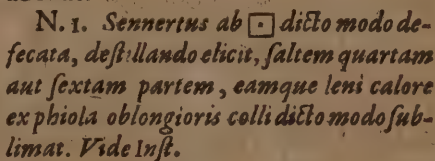 N. 1. Sennertus ab 🞔 dicto modo de-
fecata, deſtillando elicit, ſaltem quartam
aut ſextam partem, eamque leni calore
ex phiola oblongioris colli dicto modo ſub-
limat. Vide Inſt.